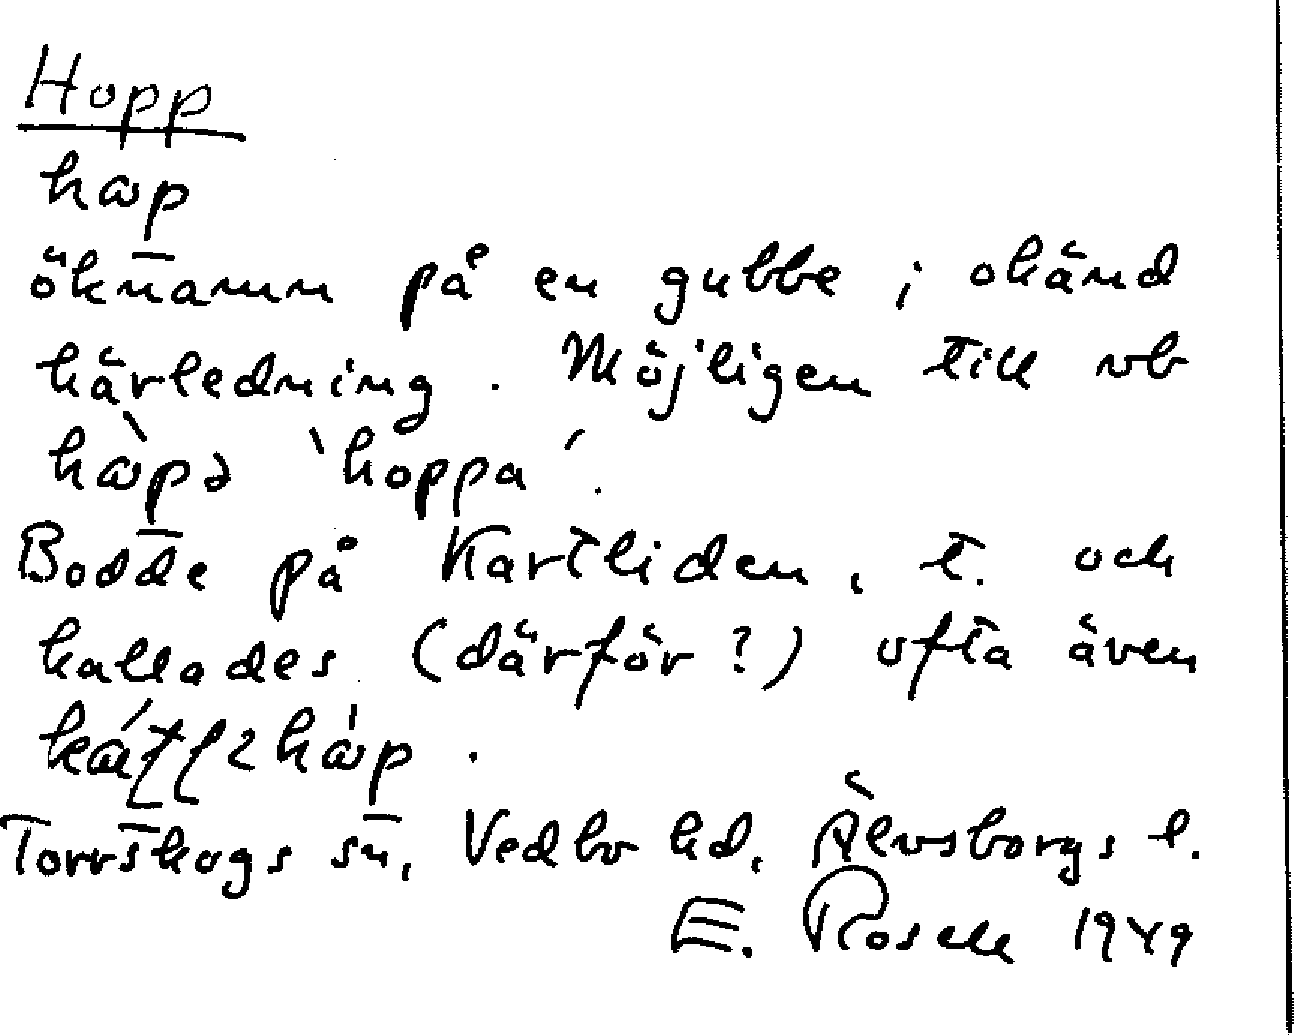 Hopp
hɷp
öknamn på en gubbe; okänd
härledning. Möjligen till vb
hɷ̀pə 'hoppa'.
Bodde på Kartliden, t. och
kallades (därför?) ofta även
Torrskogs sn, Vedbo hd, Älvsborgs l.
E. Rosell 1949